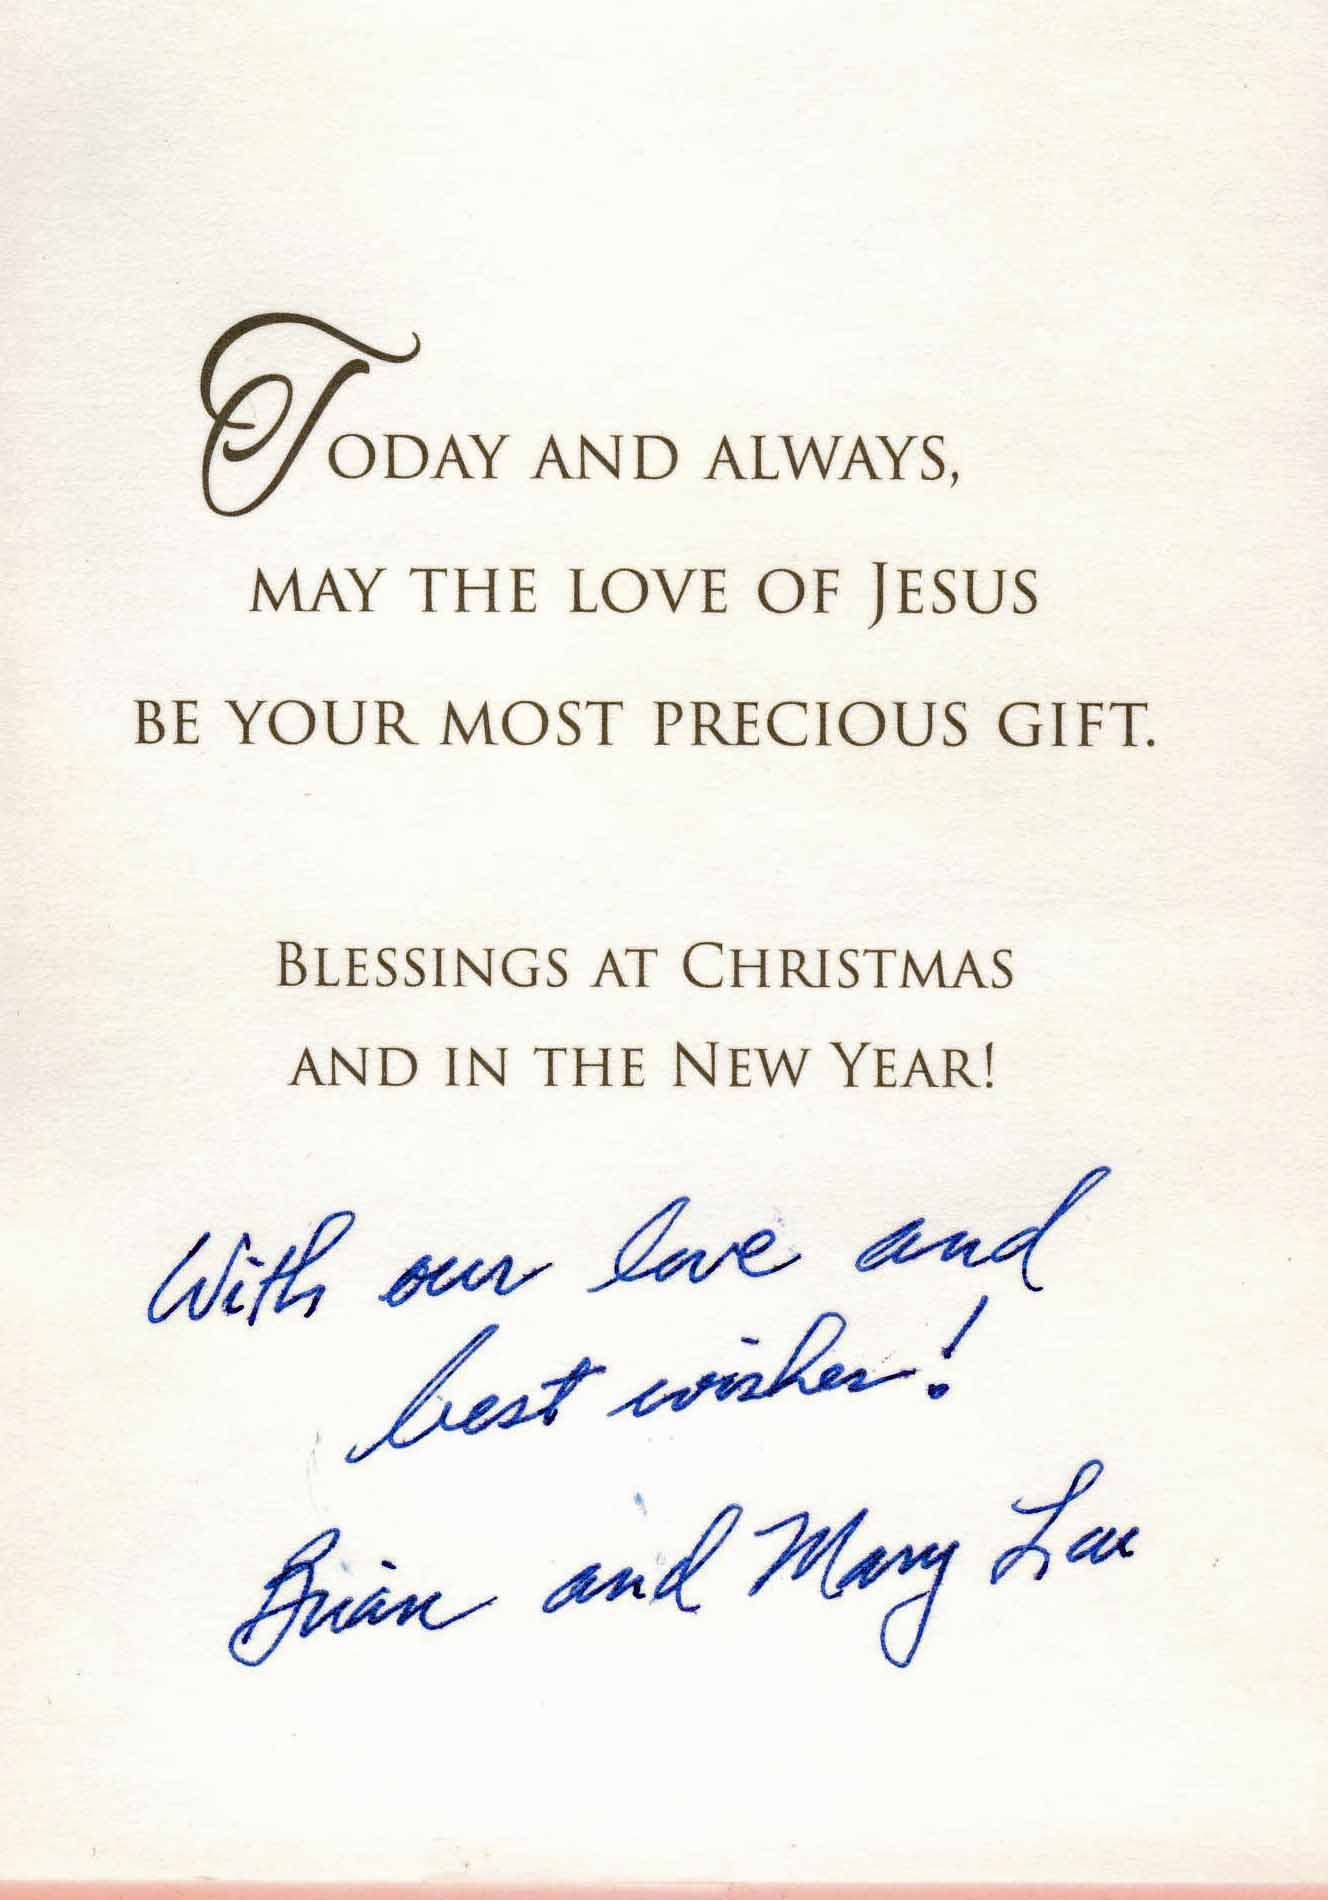 Today and always,
may the love of Jesus
be your most precious gift.
Blessings at Christmas
and in the New Year!
With our love and
best wishes!
Brian and Mary Lou